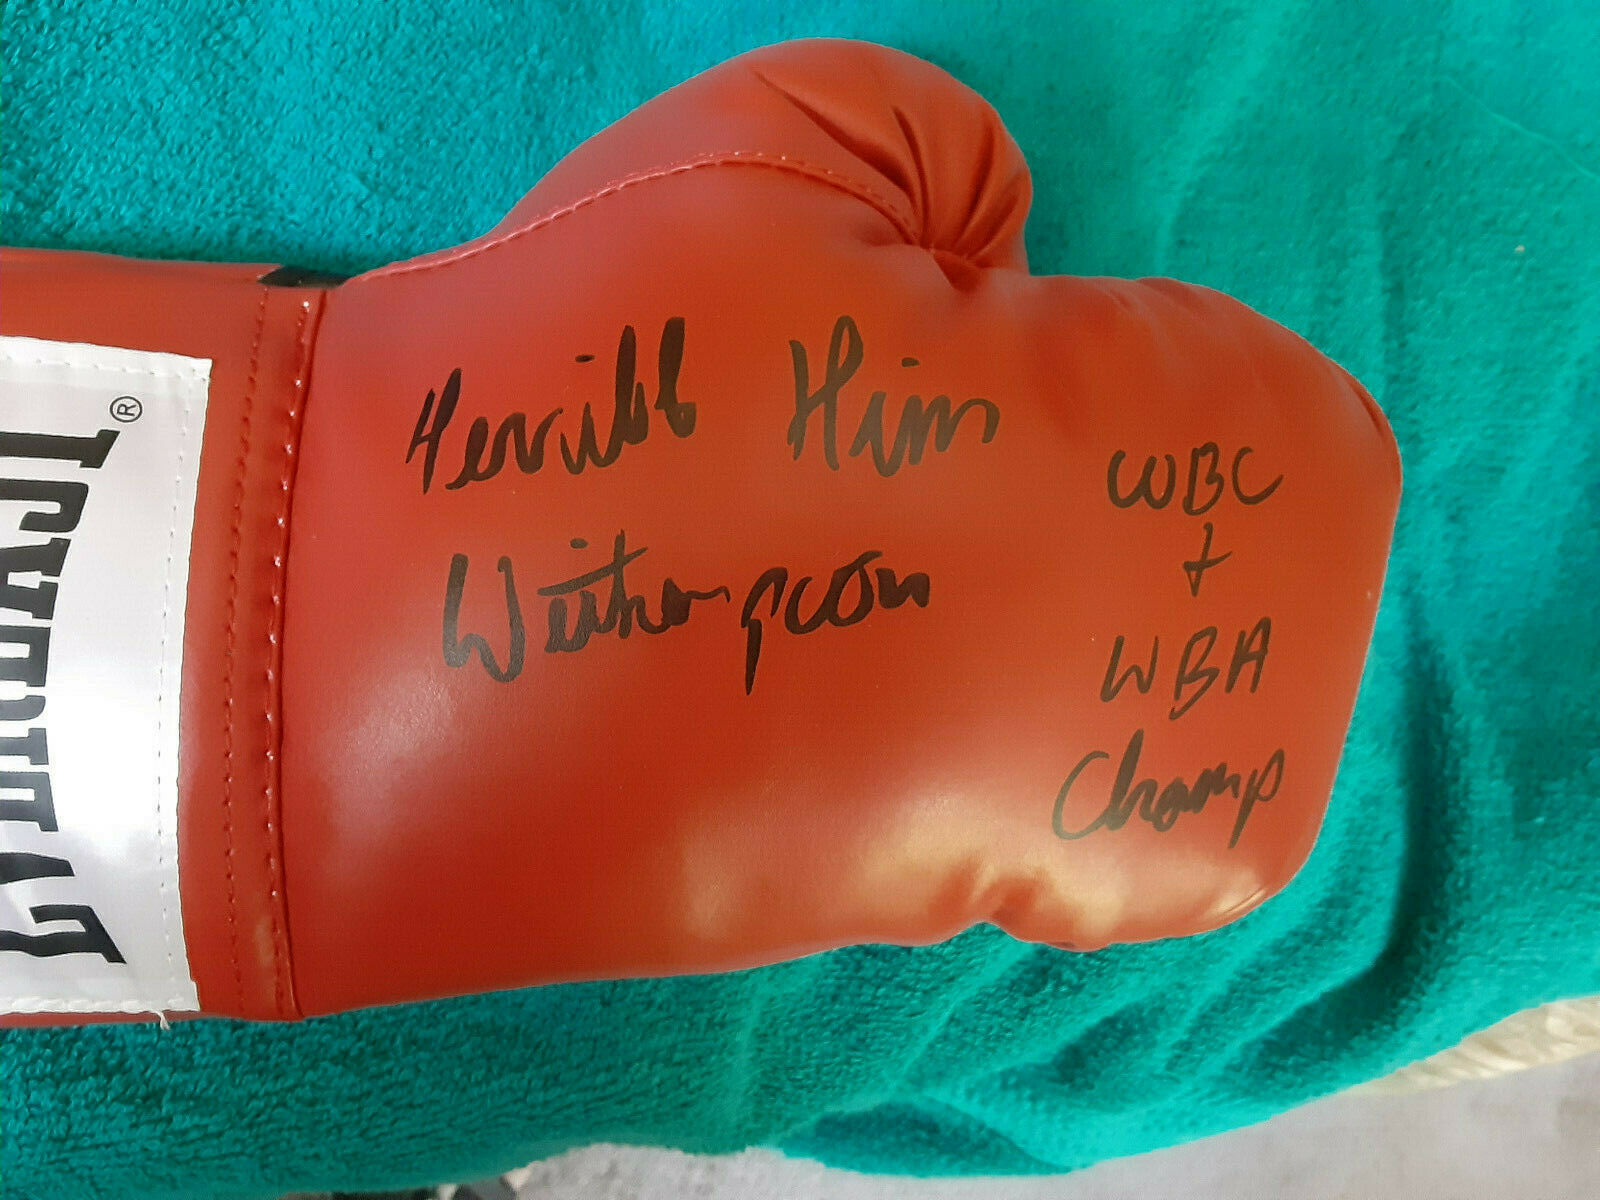 Terrible Tim
Witherspoon
WBC
+
WBA
Champ
EVERLAST®